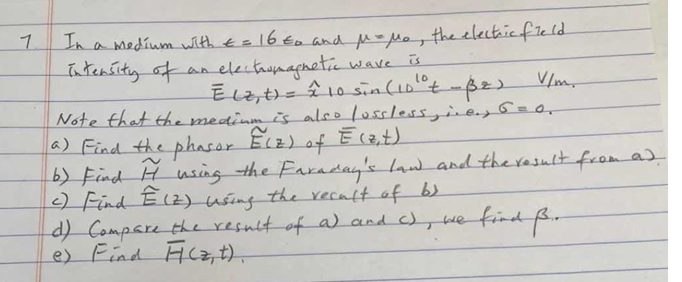 7 In a medium with ε = 16 ε₀ and μ = μ₀, the electric field
intensity of an electromagnetic wave is
Ē(z,t) = x̂ 10 sin(10¹⁰t - βz) V/m.
Note that the medium is also lossless, i.e., σ = 0.
a) Find the phasor Ẽ(z) of Ē(z,t)
b) Find H̃ using the Faraday's law and the result from a).
c) Find Ẽ(z) using the result of b)
d) Compare the result of a) and c), we find β.
e) Find H̄(z,t).